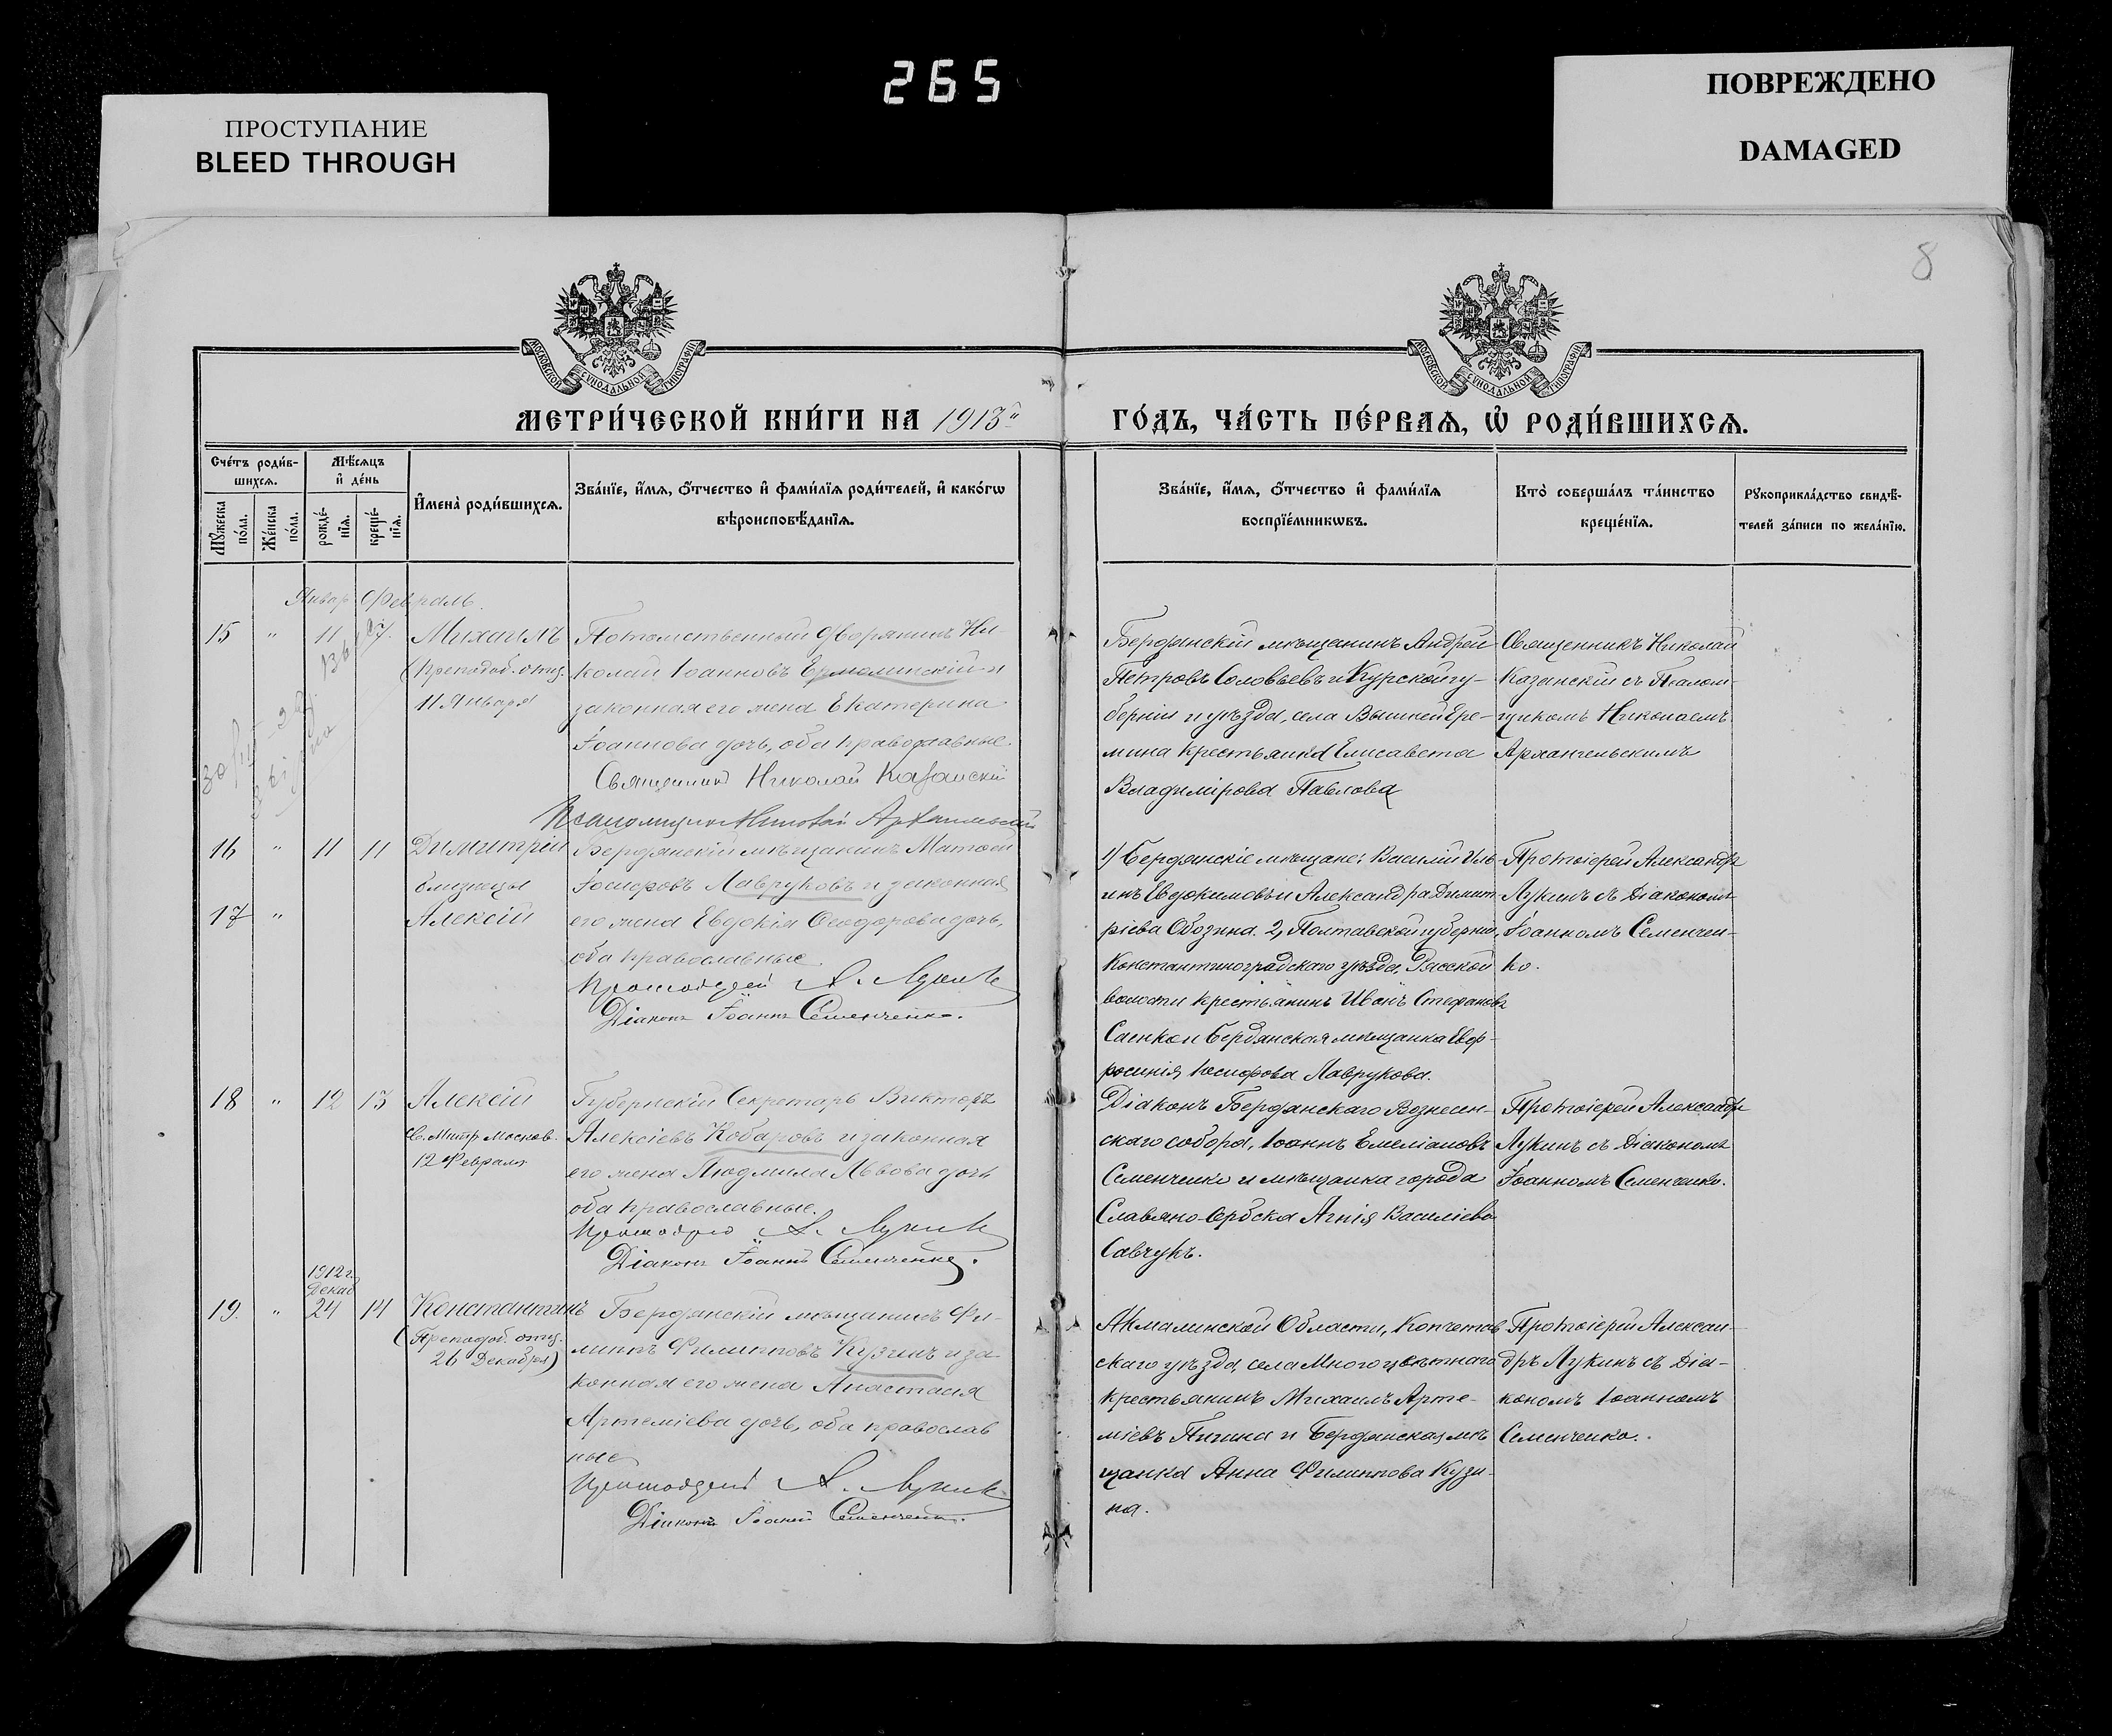 265
ПРОСТУПАНИЕ
BLEED THROUGH
ПОВРЕЖДЕНО
DAMAGED
8
МОСКОВСКОЙ СѴНОДАЛЬНОЙ ТИПОГРАФІИ
МОСКОВСКОЙ СѴНОДАЛЬНОЙ ТИПОГРАФІИ
МЕТРИ́ЧЕСКОЙ КНИ́ГИ НА 1913й
ГО́ДЪ, ЧА́СТЬ ПЕ́РВАѦ, Ѡ҆ РОДИ́ВШИХСѦ.
Сче́тъ роди́в-
шихсѧ.
Мѣ́сѧцъ
и҆ де́нь
Мꙋ́жеска
по́ла.
Же́нска
по́ла.
рожде́-
нїѧ.
креще́-
нїѧ.
И҆мена̀ роди́вшихсѧ.
Зва́нїе, и҆́мѧ, ѻ҆́тчество и҆ фами́лїѧ роди́телей, и҆ како́гѡ
вѣроисповѣ́данїѧ.
Зва́нїе, и҆́мѧ, ѻ҆́тчество и҆ фами́лїѧ
воспрїе́мникѡвъ.
Кто̀ соверша́лъ та́инство
креще́нїѧ.
Рꙋкоприкла́дство свидѣ́-
телей за́писи по жела́нїю.
Январ Февраль.
15 " 11 Михаилъ
(Преподоб. отц.
11 Января
Потомственный дворянинъ Ни-
колай Іоанновъ Ермолинскій и
законная его жена Екатерина
Іоаннова дочь, оба православные
Священникъ Николай Казанскій
Псаломщикъ Николай Архангельскій
Бердянскій мѣщанинъ Андрей
Петровъ Соловьевъ и Курской гу-
берніи и уѣзда, села Вышней Ере-
мина крестьянка Елисавета
Владимірова Павлова
Священникъ Николай
Казанскій съ Псалом-
щикомъ Николаемъ
Архангельскимъ
16 " 11 11 Димитрій
близнецы
17 " Алексій
Бердянскій мѣщанинъ Матѳей
Іосифовъ Лавруковъ и законная
его жена Евдокія Ѳеодорова дочь,
оба православные
Протоіерей А. Лукинъ
Діаконъ Іоаннъ Семенченко.
1) Бердянскіе мѣщане: Василій Иль-
инъ Евдокимовъ и Александра Димит-
ріева Обозина. 2, Полтавской губерніи,
Константиноградскаго уѣзда,
волости крестьянинъ Иванъ Стефановъ
Саенко и Бердянская мѣщанка Евф-
росинія Іосифова Лаврукова.
Протоіерей Александръ
Лукинъ съ Діакономъ
Іоанномъ Семенчен-
ко.
18 " 12 13 Алексій
Св. Митр Москов.
12 Февраля
Губернскій Секретарь Викторъ
Алексіевъ Кобаровъ и законная
его жена Людмила Львова дочь
оба православные.
Протоіерей А. Лукинъ
Діаконъ Іоаннъ Семенченко.
Діаконъ Бердянскаго Вознесен-
скаго собора, Іоаннъ Емеліановъ
Семенченко и мѣщанка города
Славяно-Сербска Агнія Василіева
Савчукъ.
Протоіерей Александръ
Лукинъ съ Діакономъ
Іоанномъ Семенченко.
1912 г.
Декаб
19. " 24 14 Константинъ
(Преподоб. отц.
26 Декабря)
Бердянскій мѣщанинъ Фи-
липпъ Филипповъ Кузинъ и за-
конная его жена Анастасія
Артеміева дочь, оба православ
ные
Протоіерей А. Лукинъ
Діаконъ Іоаннъ Семенченко.
Акмалинской Области, Кокчетав
скаго уѣзда, села Многоцвѣтнаго
крестьянинъ Михаилъ Арте-
міевъ и Бердянская мѣ
щанка Анна Филиппова Кузи-
на.
Протоіерей Алексан-
дръ Лукинъ съ Діа-
кономъ Іоанномъ
Семенченко.